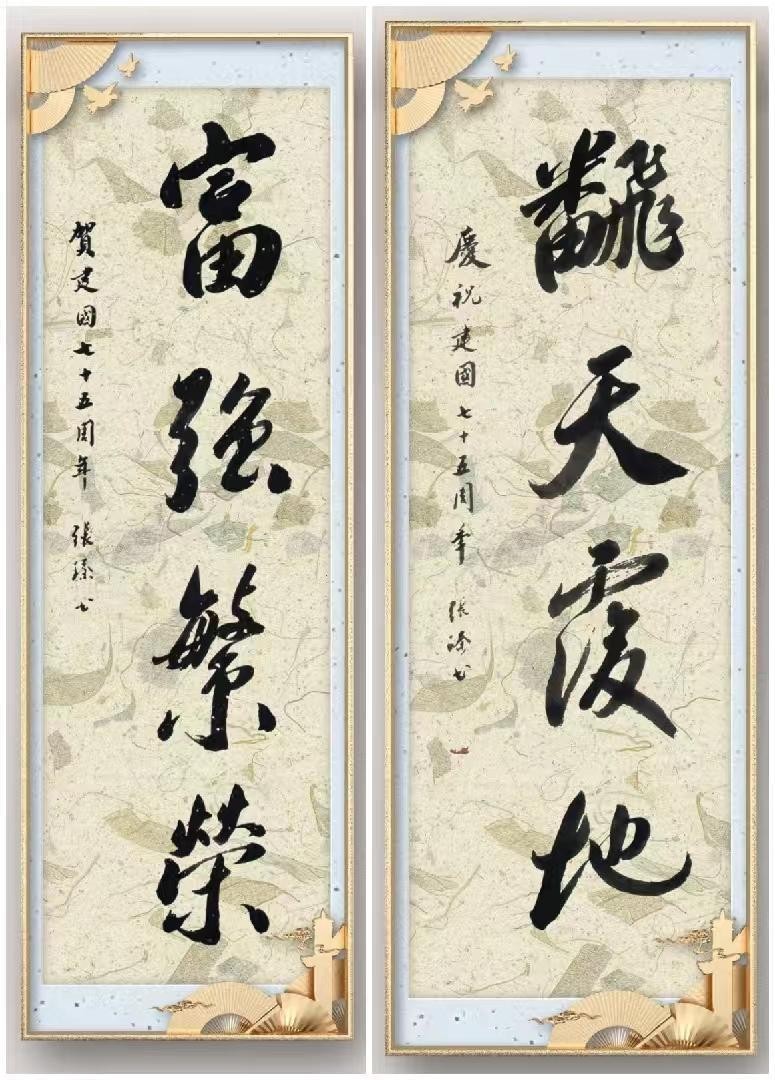 飜天覆地
慶祝建國七十五周年 張 书
富强繁榮
賀建國七十五周年 張 书